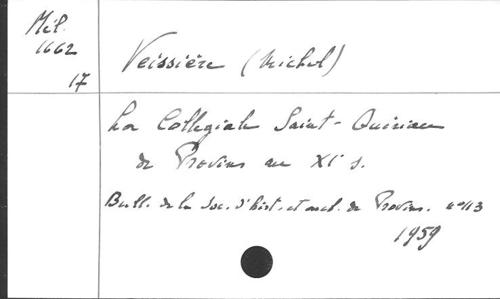 Mél.
1662
17
Veissière (Michel)
La Collégiale Saint-Quiriace
de Provins au XIe s.
Bull. de la Soc. d'hist. et arch. de Provins. nº 113
1959